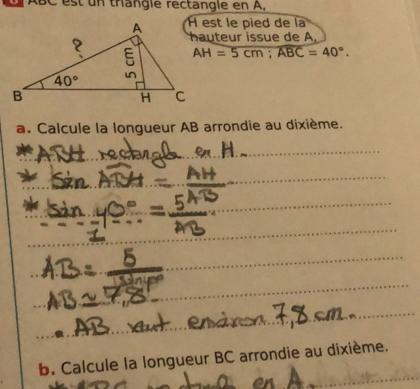 ABC est un triangle rectangle en A,
H est le pied de la
hauteur issue de A,
AH = 5 cm ; ABC = 40°.
?
A
40°
5 cm
B
H
C
a. Calcule la longueur AB arrondie au dixième.
* ABH rectangle en H.
* Sin ABH = AH
AB
* Sin 40° = 5
1
AB
AB = 5
AB ≃ 7,8
. AB vaut environ 7,8 cm.
b. Calcule la longueur BC arrondie au dixième.
en A